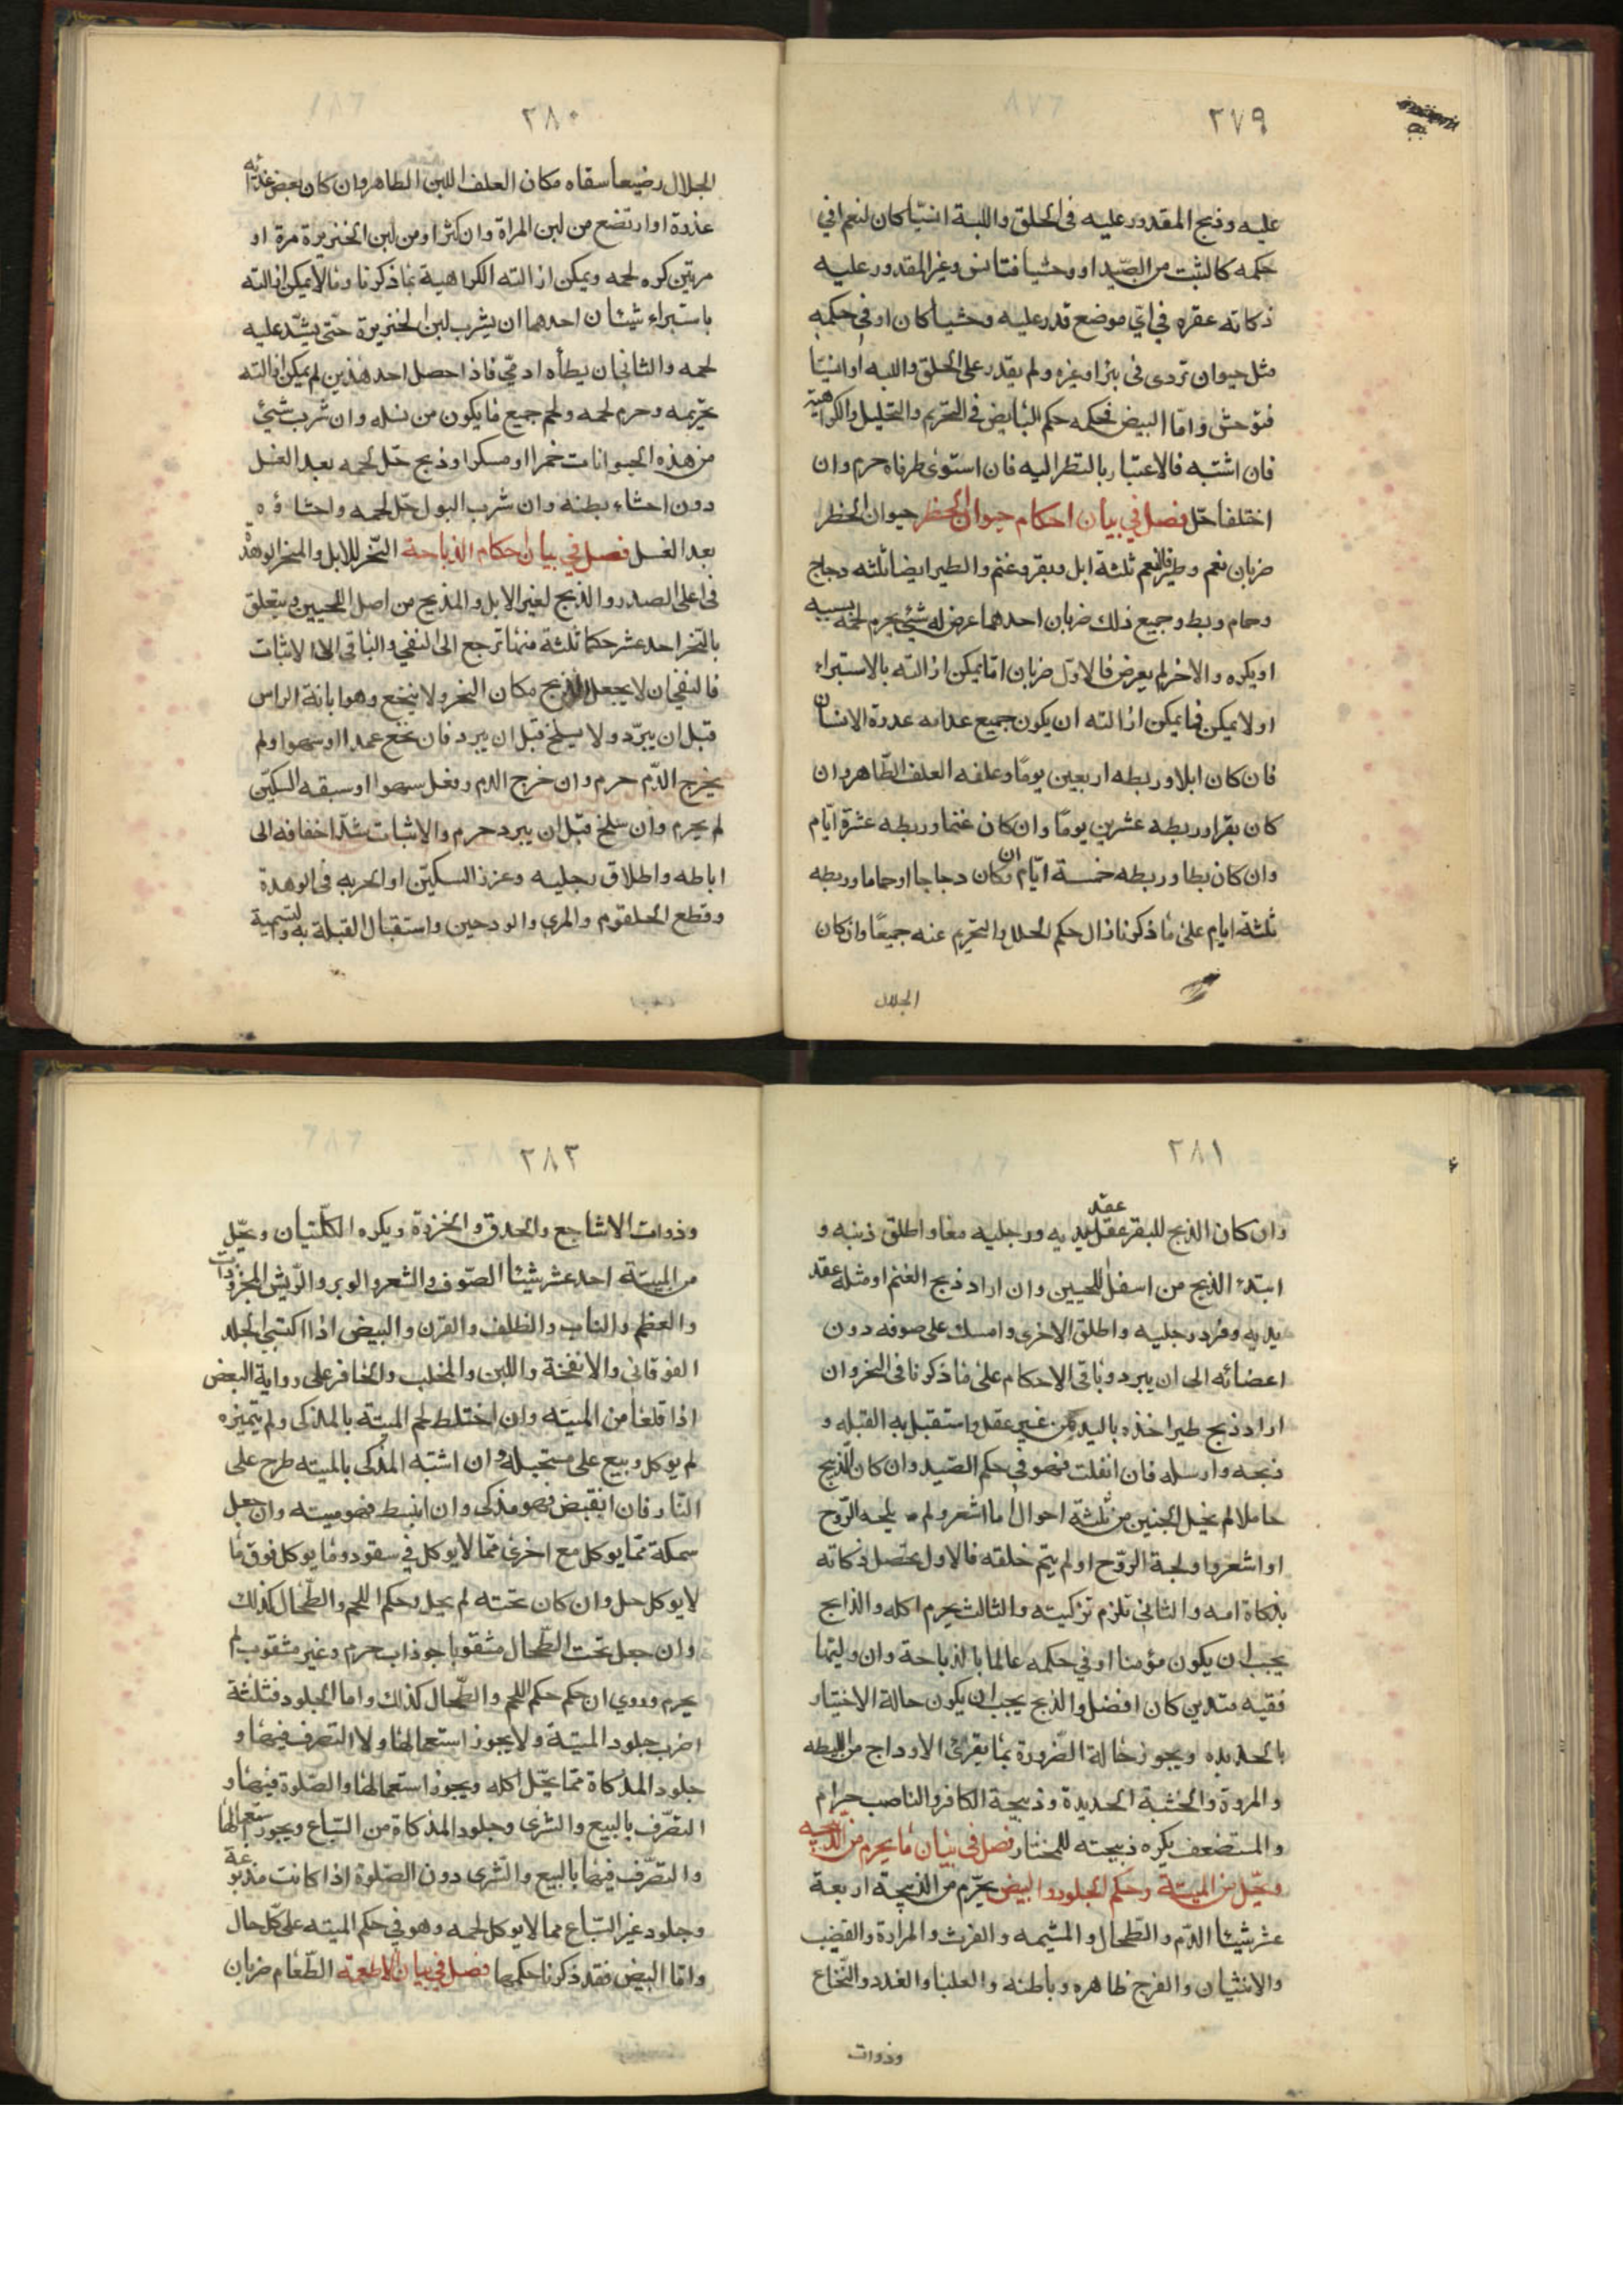 ٢٧٩
عليه وذبح المقدور عليه فى الحلق واللبة انسيّا كان لنعم او فى
حكمه كالبثت من الصّيد او وحشيا فتانس وغير المقدور عليه
ذكاته عقره في ايّ موضع قدر عليه وحشيا كان او فى حكمه
مثل حيوان تردى فى بئر او غيره ولم يقدر على الحلق واللبه او انسيّا
فتوحش وامّا البيض فحكمه حكم البايض فى التحريم والتحليل والكراهية
فان اشتبه فالاعتبار بالنظر اليه فان استوى طرفاه حرم وان
اختلفا حلّ فصل في بيان احكام حيوان الحظر حيوان الحظر
ضربان نعم وطير فالنعم ثلثة ابل وبقر وغنم والطير ايضا ثلثه دجاج
وحمام وبط وجميع ذلك ضربان احدهما عرض له شيئ يحرم لحمه بسببه
او يكره والاخر لم يعرض فالاوّل ضربان امّا يمكن ازالته بالاستبراء
او لا يمكن فما يمكن ازالته ان يكون جميع غذائه عذرة الانسان
فان كان ابلا وربطه اربعين يومًا وعلفه العلف الطّاهر وان
كان بقرا وربطه عشرين يومًا وان كان غنما وربطه عشرة ايّام
وان كان بطا وربطه خمسة ايّام وان كان دجاجا او حماما وربطه
ثلثة ايام على ما ذكرنا زال حكم الجلل والتحريم عنه جميعًا وان كان
الجلال
٢٨٠
الجلال رضيعا سقاه مكان العلف اللبن الطاهر وان كان بعض غذائه
عذرة او ارتضع من لبن المراة وان كثر او من لبن الخنزيرة مرة او
مرتين كره لحمه ويمكن ازالته الكراهية بما ذكرنا وما لا يمكن ازالته
باستبراء شيئان احدهما ان يشرب لبن الخنزيرة حتّى يشتدّ عليه
لحمه والثانى ان يطأه ادمّي فاذا حصل احد هذين لم يمكن ازالته
تحريمه وحرم لحمه ولحم جميع ما يكون من نسله وان شرب شيئ
من هذه الحيوانات خمرا او مسكرا وذبح حلّ لحمه بعد الغسل
دون احشاء بطنه وان شرب البول حل لحمه واحشاؤه
بعد الغسل فصل في بيان احكام الذباحة النّحر للابل والمنخر الوهدة
فى اعلى الصدر والذبح لغير الابل والمذبح من اصل اللحيين ويتعلق
بالنّحر احد عشر حكما ثلثة منها ترجع الى النفي والباقى الى الاثبات
فالنفي ان لا يجعل الذبح مكان النحر ولا ينخع وهو ابانة الراس
قبل ان يبرّد ولا يسلخ قبل ان يبرد فان نخع عمدا او سهوا ولم
يخرج الدّم حرم وان خرج الدم وفعل سهوا او سبقه السكيّن
لم يحرم وان سلخ قبل ان يبرد حرم والاثبات شدّ اخفافه الى
اباطه واطلاق رجليه وغرز السكيّن او الحربه فى الوهدة
وقطع الحلقوم والمري والودجين واستقبال القبلة به والتسمية
٢٨١
وان كان الذبح للبقر عقل يديه ورجليه معا واطلق ذنبه و
عقد
ابتدء الذبح من اسفل اللحيين وان اراد ذبح الغنم او مثله عقد
يديه وفرد رجليه واطلق الاخرى وامسك على صوفه دون
اعضائه الى ان يبرد وباقى الاحكام على ما ذكرنا فى النحر وان
اراد ذبح طير اخذه باليد من غير عقل واستقبل به القبله و
ذبحه وارسله فان انفلت فهو في حكم الصّيد وان كان الذبح
حاملا لم يخل الجنين من ثلثه احوال اما اشعر ولم يلجه الرّوح
او اشعر واولجة الروّح او لم يتم خلقه فالاول تحصل ذكاته
بذكاة امه والثاني تلزم تزكيته والثالث يحرم اكله والذابح
يجب ان يكون مؤمنا او في حكمه عالما بالذباحة وان وليتها
فقيه متدين كان افضل والذبح يجب ان يكون حالة الاختيار
بالحديده ويجوز حالة الضرورة بما يفرى الاوداج من الليطه
والمروة والخشبة الحديدة وذبيحة الكافر والناصب حرام
والمستضعف يكره ذبيحته للمختار فصل في بيان ما يحرم من الذبيحه
ويحّل من الميتة وحكم الجلود والبيض يحرّم من الذبيحة اربعة
عشر شيئا الدّم والطحال والمشيمه والفرث والمرارة والقضيب
والانثيان والفرج ظاهره وباطنه والعلبا والغدد والنّخاع
وذوات
٢٨٣
وذوات الاشاجع والحدق والخرزة ويكره الكلّتيان ويحّل
من الميتة احد عشر شيئا الصّوف والشعر والوبر والرّيش المجزوذات
والعظم والناب والظلف والقرن والبيض اذا اكتسي الجلد
الفوقانى والانفخة واللبن والمخلب والحافر على رواية البعض
اذا قلعا من الميتّه وان اختلط لحم الميتة بالمذكى ولم يتميزه
لم يوكل وبيع على مستحيله وان اشتبه المذكى بالميته طرح على
النّار فان انقبض فهو مذكى وان انبسط فهو ميته وان جعل
سمكة ممّا يوكل مع اخرى ممّا لا يوكل في سفود وما يوكل فوق ما
لا يوكل حل وان كان تحته لم يحل وحكم اللحم والطّحال كذلك
وان جعل تحت الطّحال مثقوبا جوذاب حرم وغير مثقوب لم
يحرم وروي ان حكم حكم اللحم والطّحال كذلك واما الجلود فثلثة
اضرب جلود الميتة ولا يجوز استعمالها ولا التصرف فيها و
جلود المذكاة ممّا يحّل اكله ويجوز استعمالها والصّلوة فيها و
التصّرف بالبيع والشرى وجلود المذكاة من السّباع ويجوز استعمالها
والتصرّف فيها بالبيع والشرى دون الصّلوة اذا كانت مدبوغة
وجلود غير السّباع مما لا يوكل لحمه وهو في حكم الميته على كلّ حال
وامّا البيض فقد ذكرنا حكمها فصل في بيان الاطعمة الطّعام ضربان